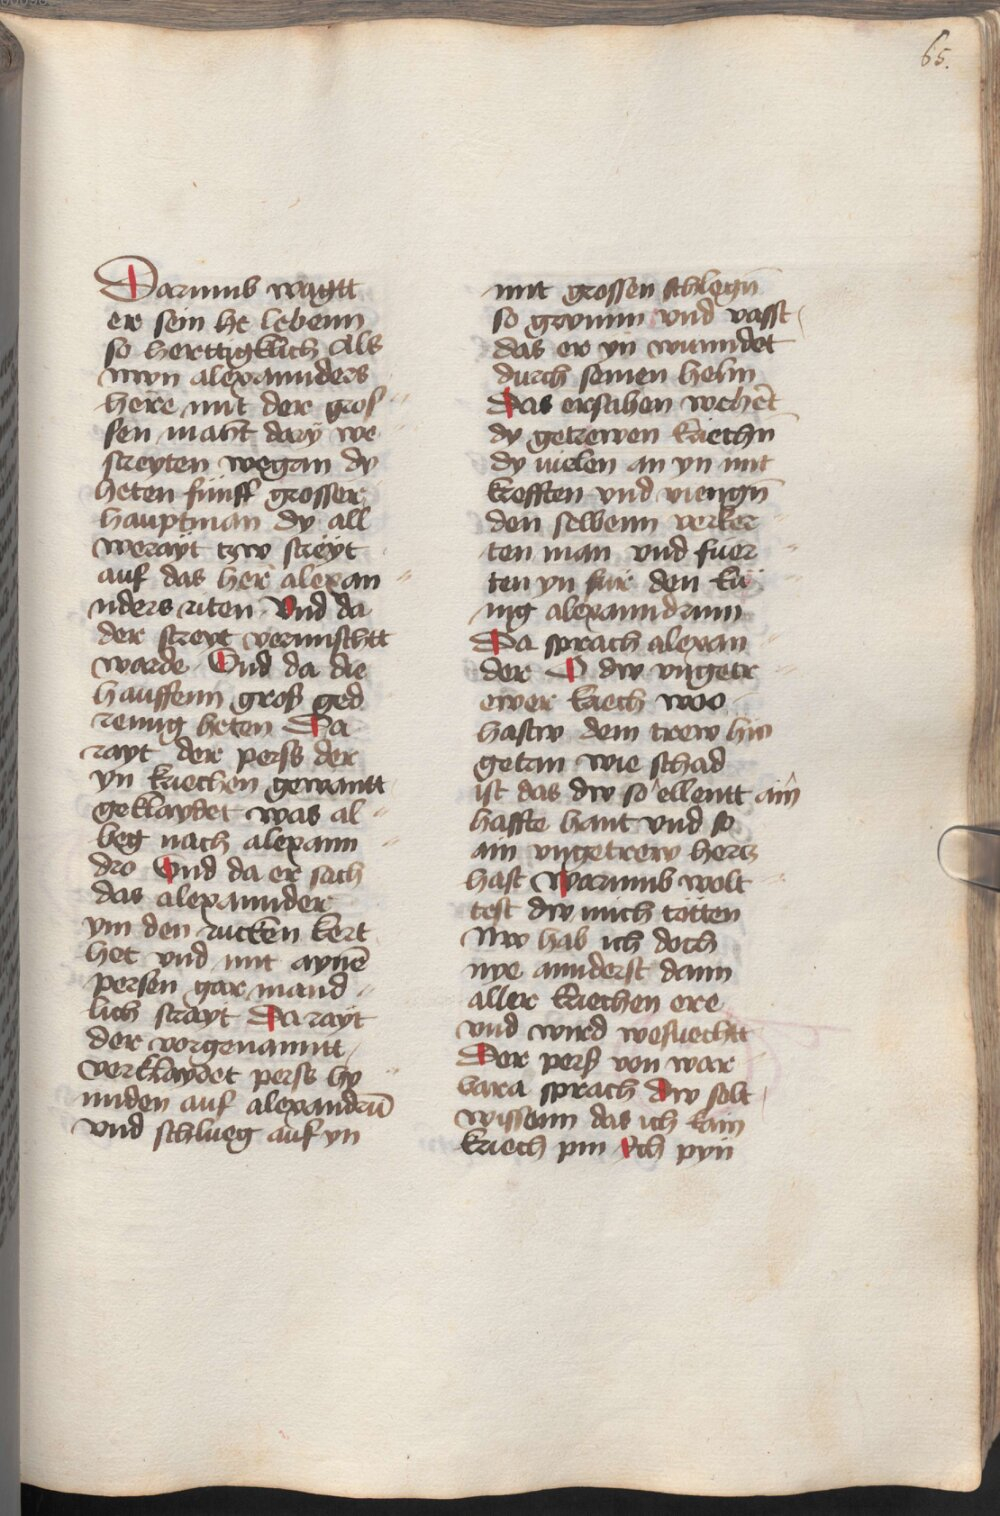 65.
Darumb wagtt
er sein he lebenn
so herttigklich Als
nwn alexannders
here mit der gros
sen macht darÿ we
streyten wegan dy
heten fünff grosser
hauptman dy all
werayt tzw streÿt
auf das her alexan
nders riten Vnd da
der streyt vermischtt
warde Vnd da die
hauffenn gros ged
renng heten Da
rayt der perss der
yn kriechen gewantt
geklaydet was al
beg nach alexann
dro Vnd da er sach
das alexannder
ym den rucken kert
het vnd mit aynē
persen gar mand
lich strayt Da raÿt
der vorgenanntt
verklaÿdet perss hy
nnden auf alexandrū
vnd schlueg auf yn
mit grossen schlegn̄
so grymm vnd vasst
das er yn wunndet
durch seinen helm
Das ersahen
dy getrewen kriechn̄
dy vielen an yn mit
krefften vnd viengn̄
den selbenn verker
ten man vnd fuer
ten yn fur den kü
nig alexanndrum
Da sprach alexan
der O dw vngetr
ewer kriech woo
hastw dein trew hin
getan wie schad
ist das dw so ellentt
haffte hant vnd so
ain vngetrew hertz
hast Warumb wolt
test dw mich tötten
Nw hab ich doch
nye annderst dann
aller kriechen ere
vnd wird wesuechtt
Der perss von war
bara sprach Dw solt
wissenn das ich kain
kriech pin Ich pyn